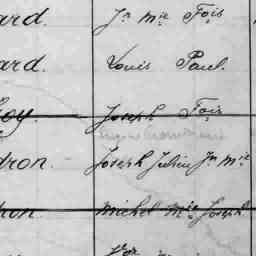 ard. Jn Mie Fois
ard. Louis Paul.
Joseph Fois
dron. Joseph Julien Jn Mie
hon. Michel Mie Joseph